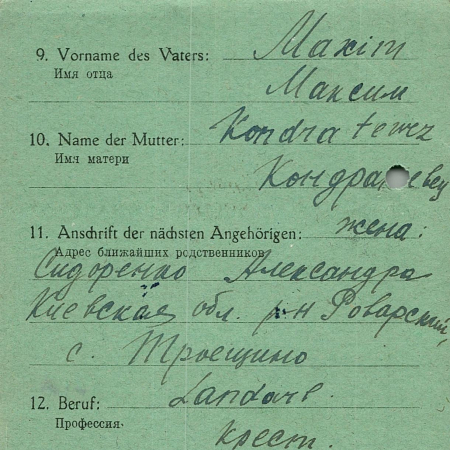 Maxim
9. Vorname des Vaters:
Имя отца
Максим
Kondratewez
10. Name der Mutter:
Имя матери
Кондратевец
11. Anschrift der nächsten Angehörigen: жена:
Адрес ближайших родственников
Сидоренко Александра
Киевская обл. р-н Роварский,
с. Троещино
12. Beruf:
Профессия
крест.